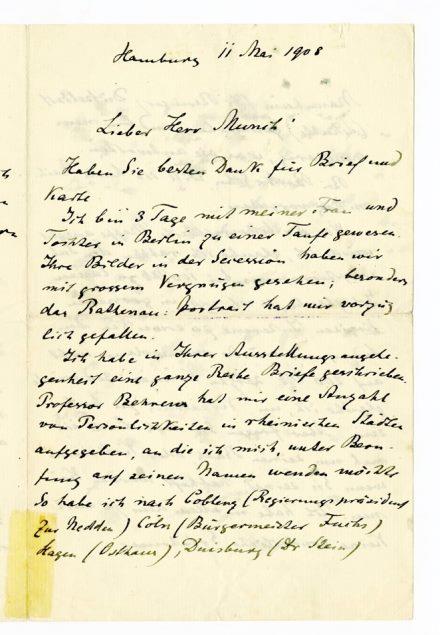 Hamburg 11 Mai 1908
Lieber Herr Munch!
Haben Sie besten Dank für Brief und
Karte
Ich bin 3 Tage mit meiner Frau und
Tochter in Berlin zu einer Taufe gewesen.
Ihre Bilder in der Secession haben wir
mit grossem Vergnügen gesehen, besonders
das Rathenau-Portrait hat mir vorzüg
lich gefallen.
Ich habe in Ihrer Ausstellungsangele-
genheit eine ganze Reihe Briefe geschrieben.
Professor Behrens hat mir eine Anzahl
von Persönlichkeiten in rheinischen Städten
aufgegeben, an die ich mich, unter Beru-
fung auf seinen Namen wenden möchte
So habe ich nach Coblenz (Regierungspräsident
zur Nedden) Cöln (Bürgermeister Fuchs)
Hagen (Osthaus), Duisburg (Dr Stein)